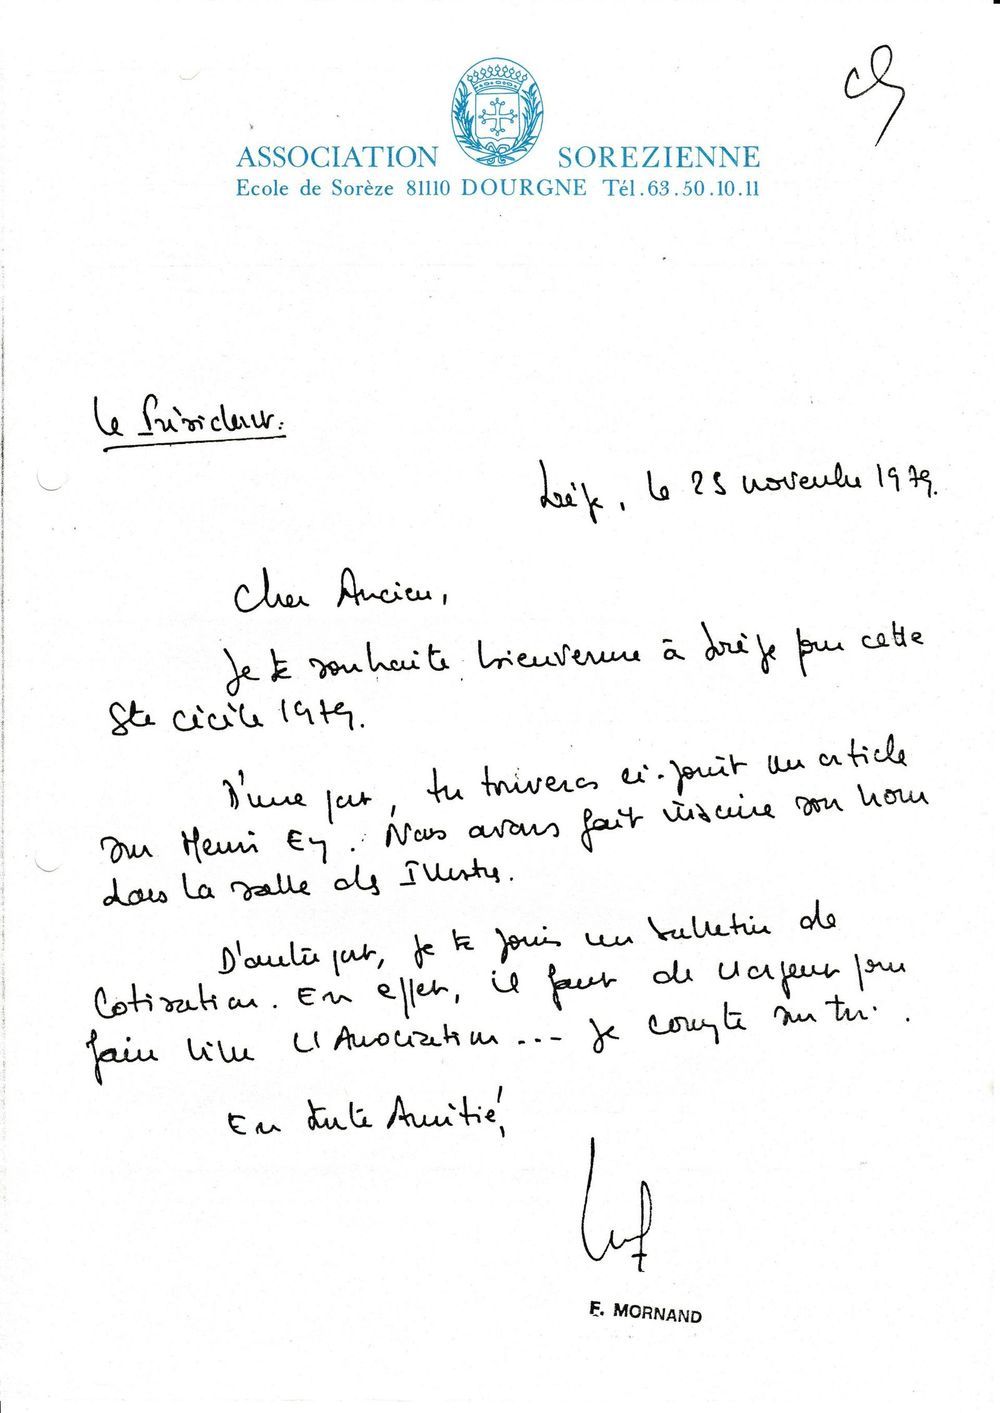 ASSOCIATION SOREZIENNE
Ecole de Sorèze 81110 DOURGNE Tél.63.50.10.11
Le Président.
Sorèze, le 25 novembre 1979.
Cher Ancien,
Je te souhaite bienvenue à Sorèze pour cette
Ste Cécile 1979.
D'une part, tu trouveras ci-joint un article
sur Henri Ey. Nous avons fait inscrire son nom
dans la salle des Illustres.
D'autre part, je te joins un bulletin de
Cotisation. En effet, il faut de l'argent pour
faire vivre l'Association... Je compte sur toi.
En toute Amitié,
F. MORNAND